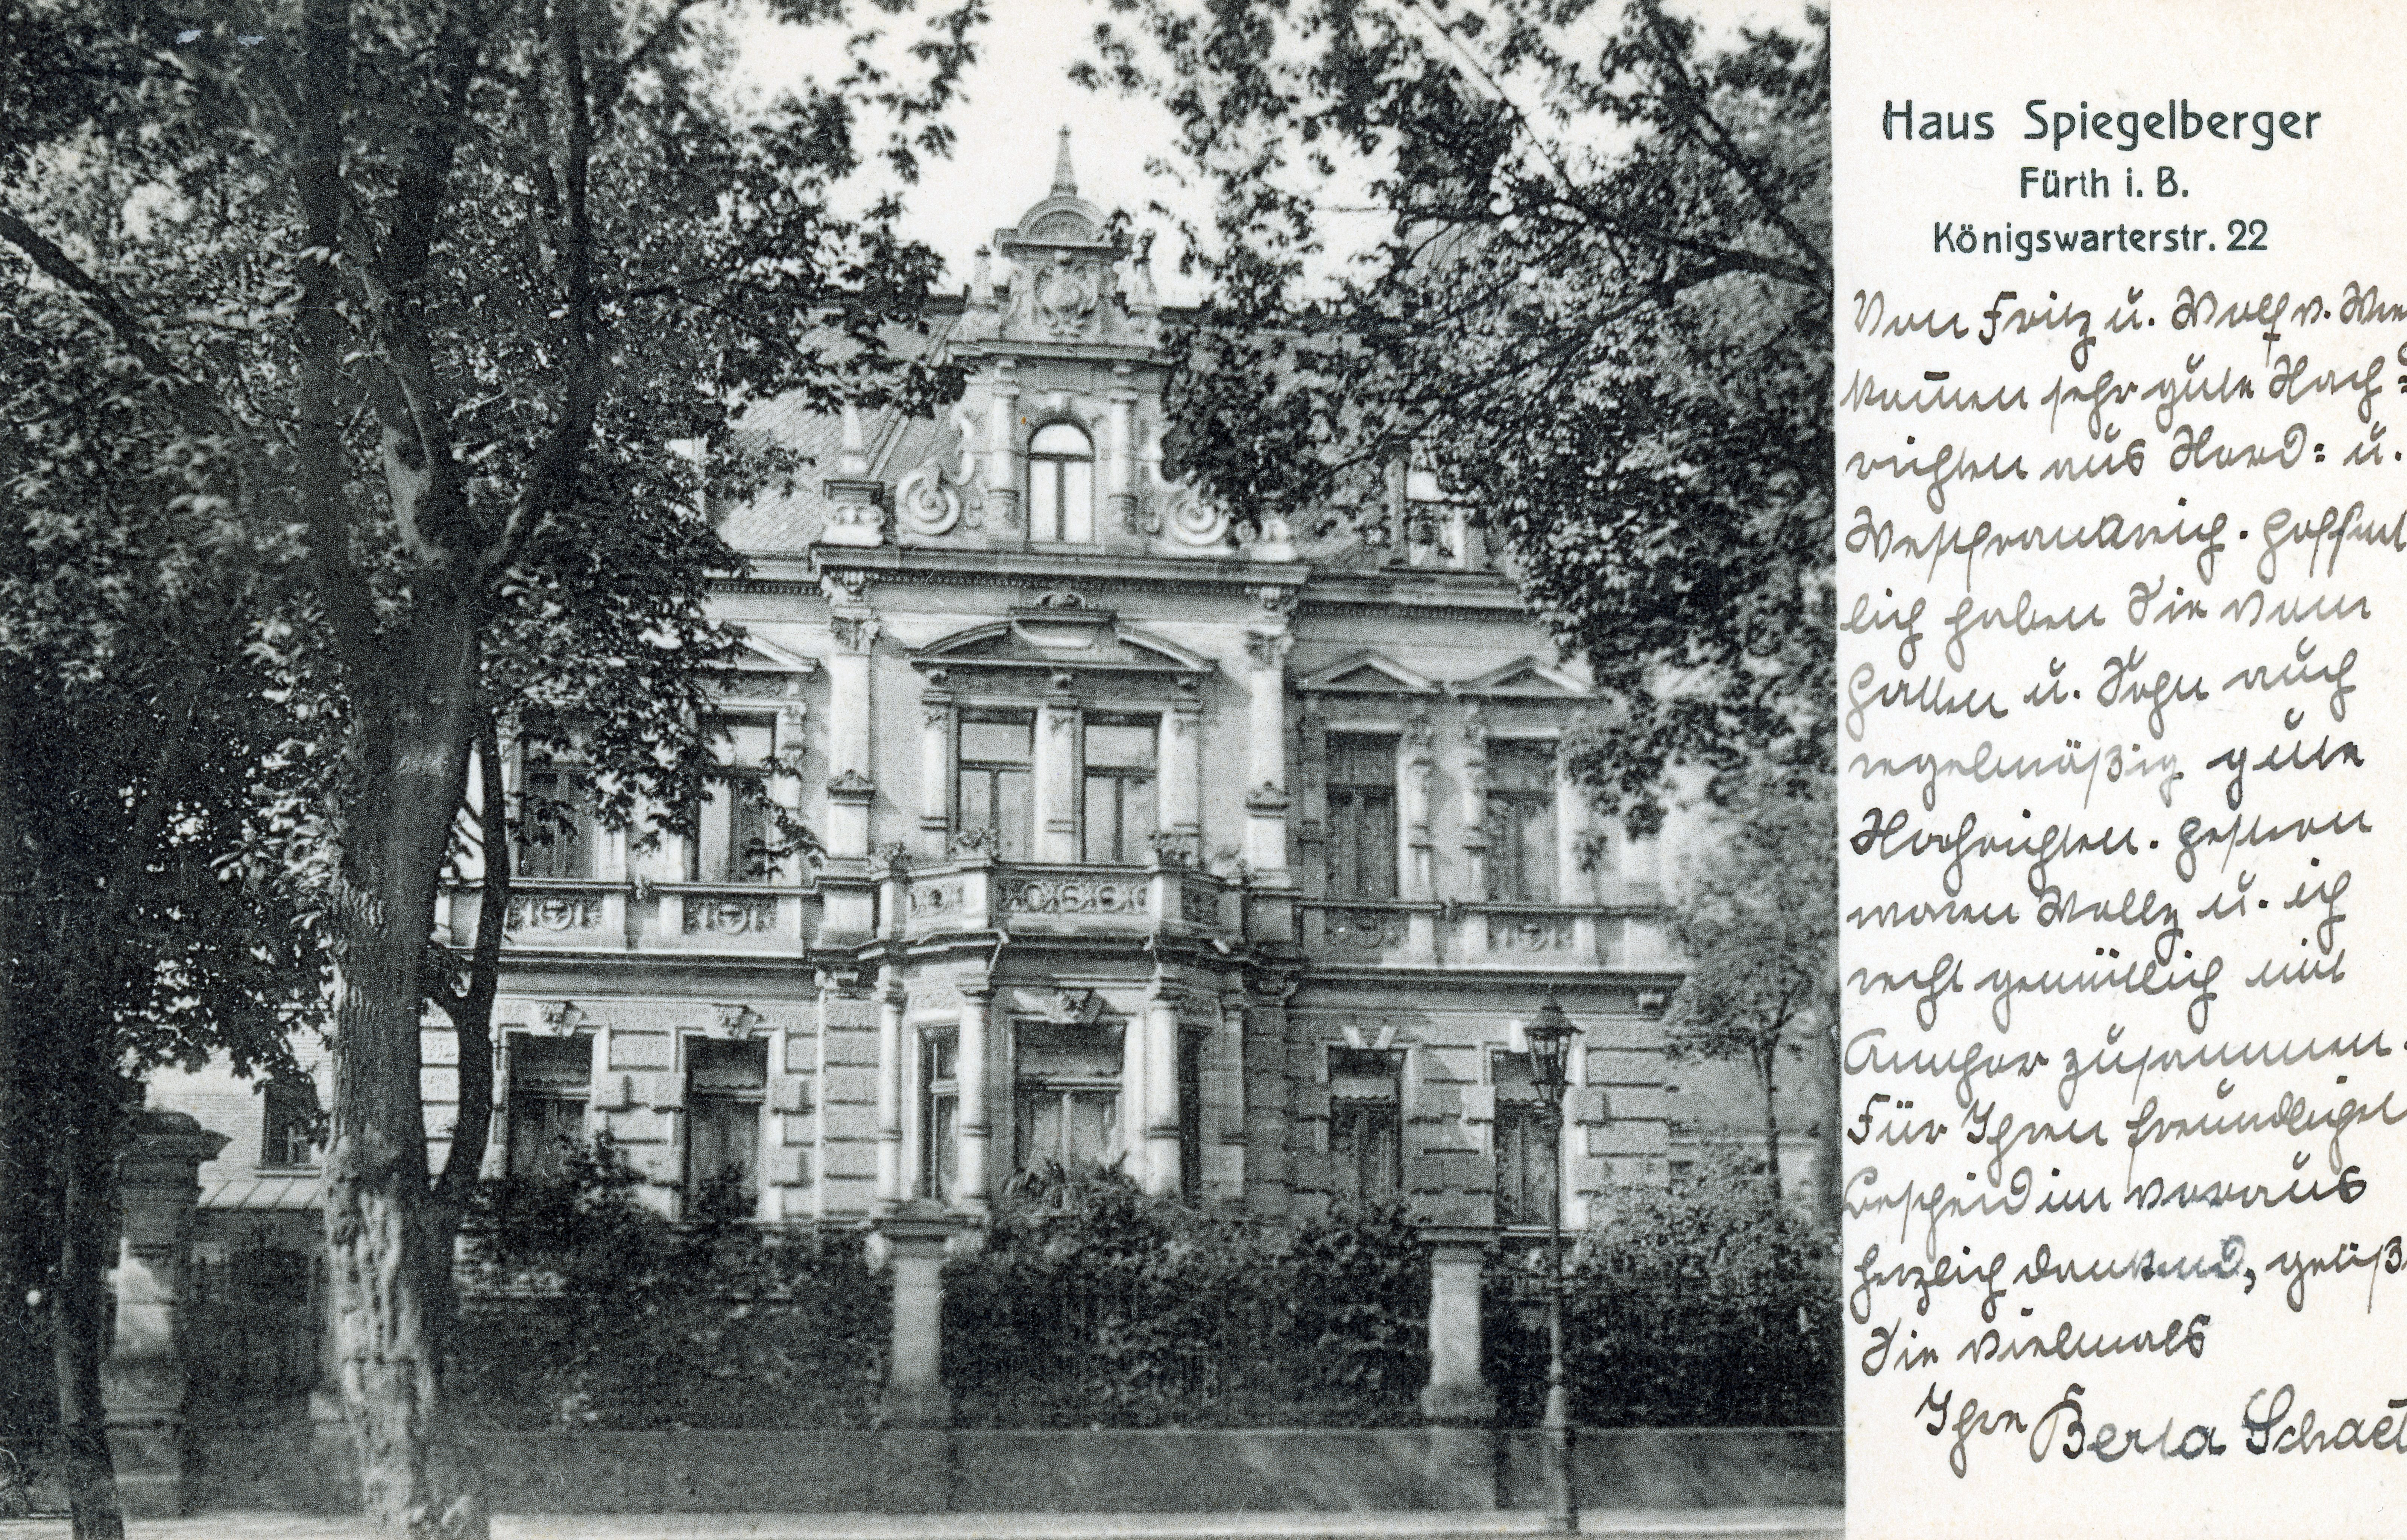 Haus Spiegelberger
Fürth i. B.
Königswarterstr. 22
Von Fritz u. Wolf v.
kom̅en sehr gute Nach=
richten aus Nord= u.
Westfrankreich. Hoffent
lich haben Sie vom
Gatten u. Sohn auch
regelmäßig gute
Nachrichten. Gestern
waren Welly u. ich
recht gemütlich mit
zusammen.
Für Ihren freundlichst
Bescheid im voraus
herzlich dankend, grüß
Sie vielmals
Ihre Berta